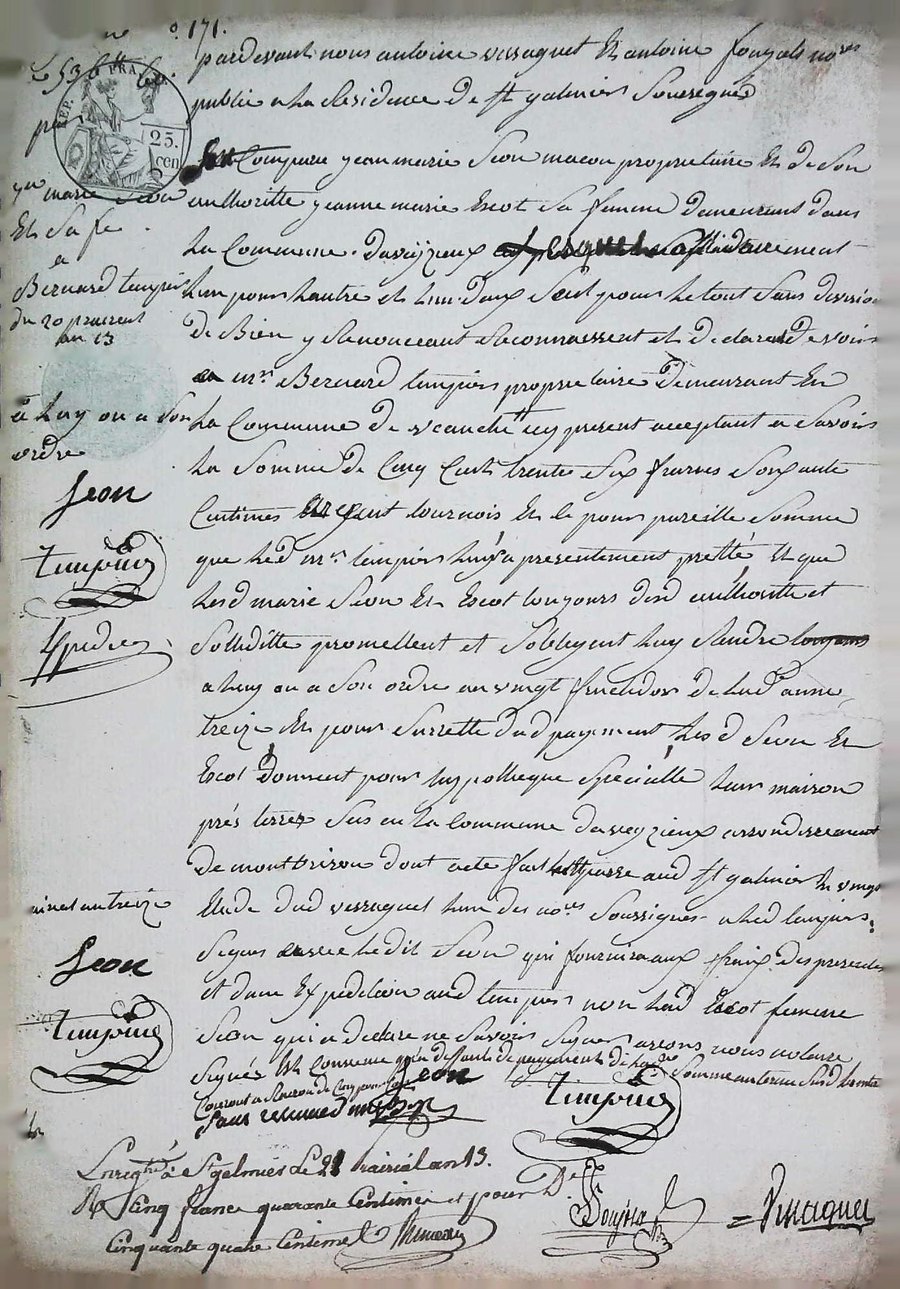 no. 171.
pardevant nous antoine vissaguet Et antoine foujols nores
public a La Residence De St galmier Soussignés
REP. FRA.
25.
cen
Compare jean marie Seon macon proprietaire Et De Son
authoritte jeanne marie Escot Sa femme Demeurant dans
La Commune Daveyzieux
Lun pour Lautre et Lun Deux Seul pour Le tout Sans Division
De Bien y Renonceant Reconnaissent et Declarent Devoir
a mr. Bernard tempier proprietaire Demeurant En
La Commune De veauche icy present acceptant a Savoir
La Somme De Cinq Cents trente Six francs Soixante
Centimes argent tournois Et ce pour pareille Somme
que Led mr. tempier Luy a presentement pretté Et que
Lesd marie Seon Et Escot toujours dud authoritte et
Solliditte promettent et Soblegent Luy Rendre
a Luy ou a Son ordre au vingt fructidor De Lad anne
treize Et pour Surette dud payement Lesd Seon Et
Escot Donnent pour hypotheque Specialle Leur maison
prés terres Sis en La Commune Daveyzieux arrondissement
De montbrison dont acte fait et passe aud St galmier Le vingt
Etude dud vissaguet Lun des nores Soussignes a Led tempier
Signes avec Ledit Seon qui fournira aux fraix des presentes
et dune Expedition aud tempier non Lad Escot femme
Seon qui a Declare ne Savoir Signer avons nous notaire
Signés Est Convenu qu'a deffaut de payement de Lad
Somme au terme Susd
Sans retenue
Seon
Tempier
jn marie Seon
Et Sa fe
a
Bernard tempier
du 20 prairial
an 13
a Luy ou a Son
ordre
Seon
Tempier
an treize
Seon
Tempier
Enregtré à St galmier le 21 prairial an 13.
R. Cinq francs quarante Centimes et pour De
Cinquante quatre Centimes
Foujols
Vissaguet